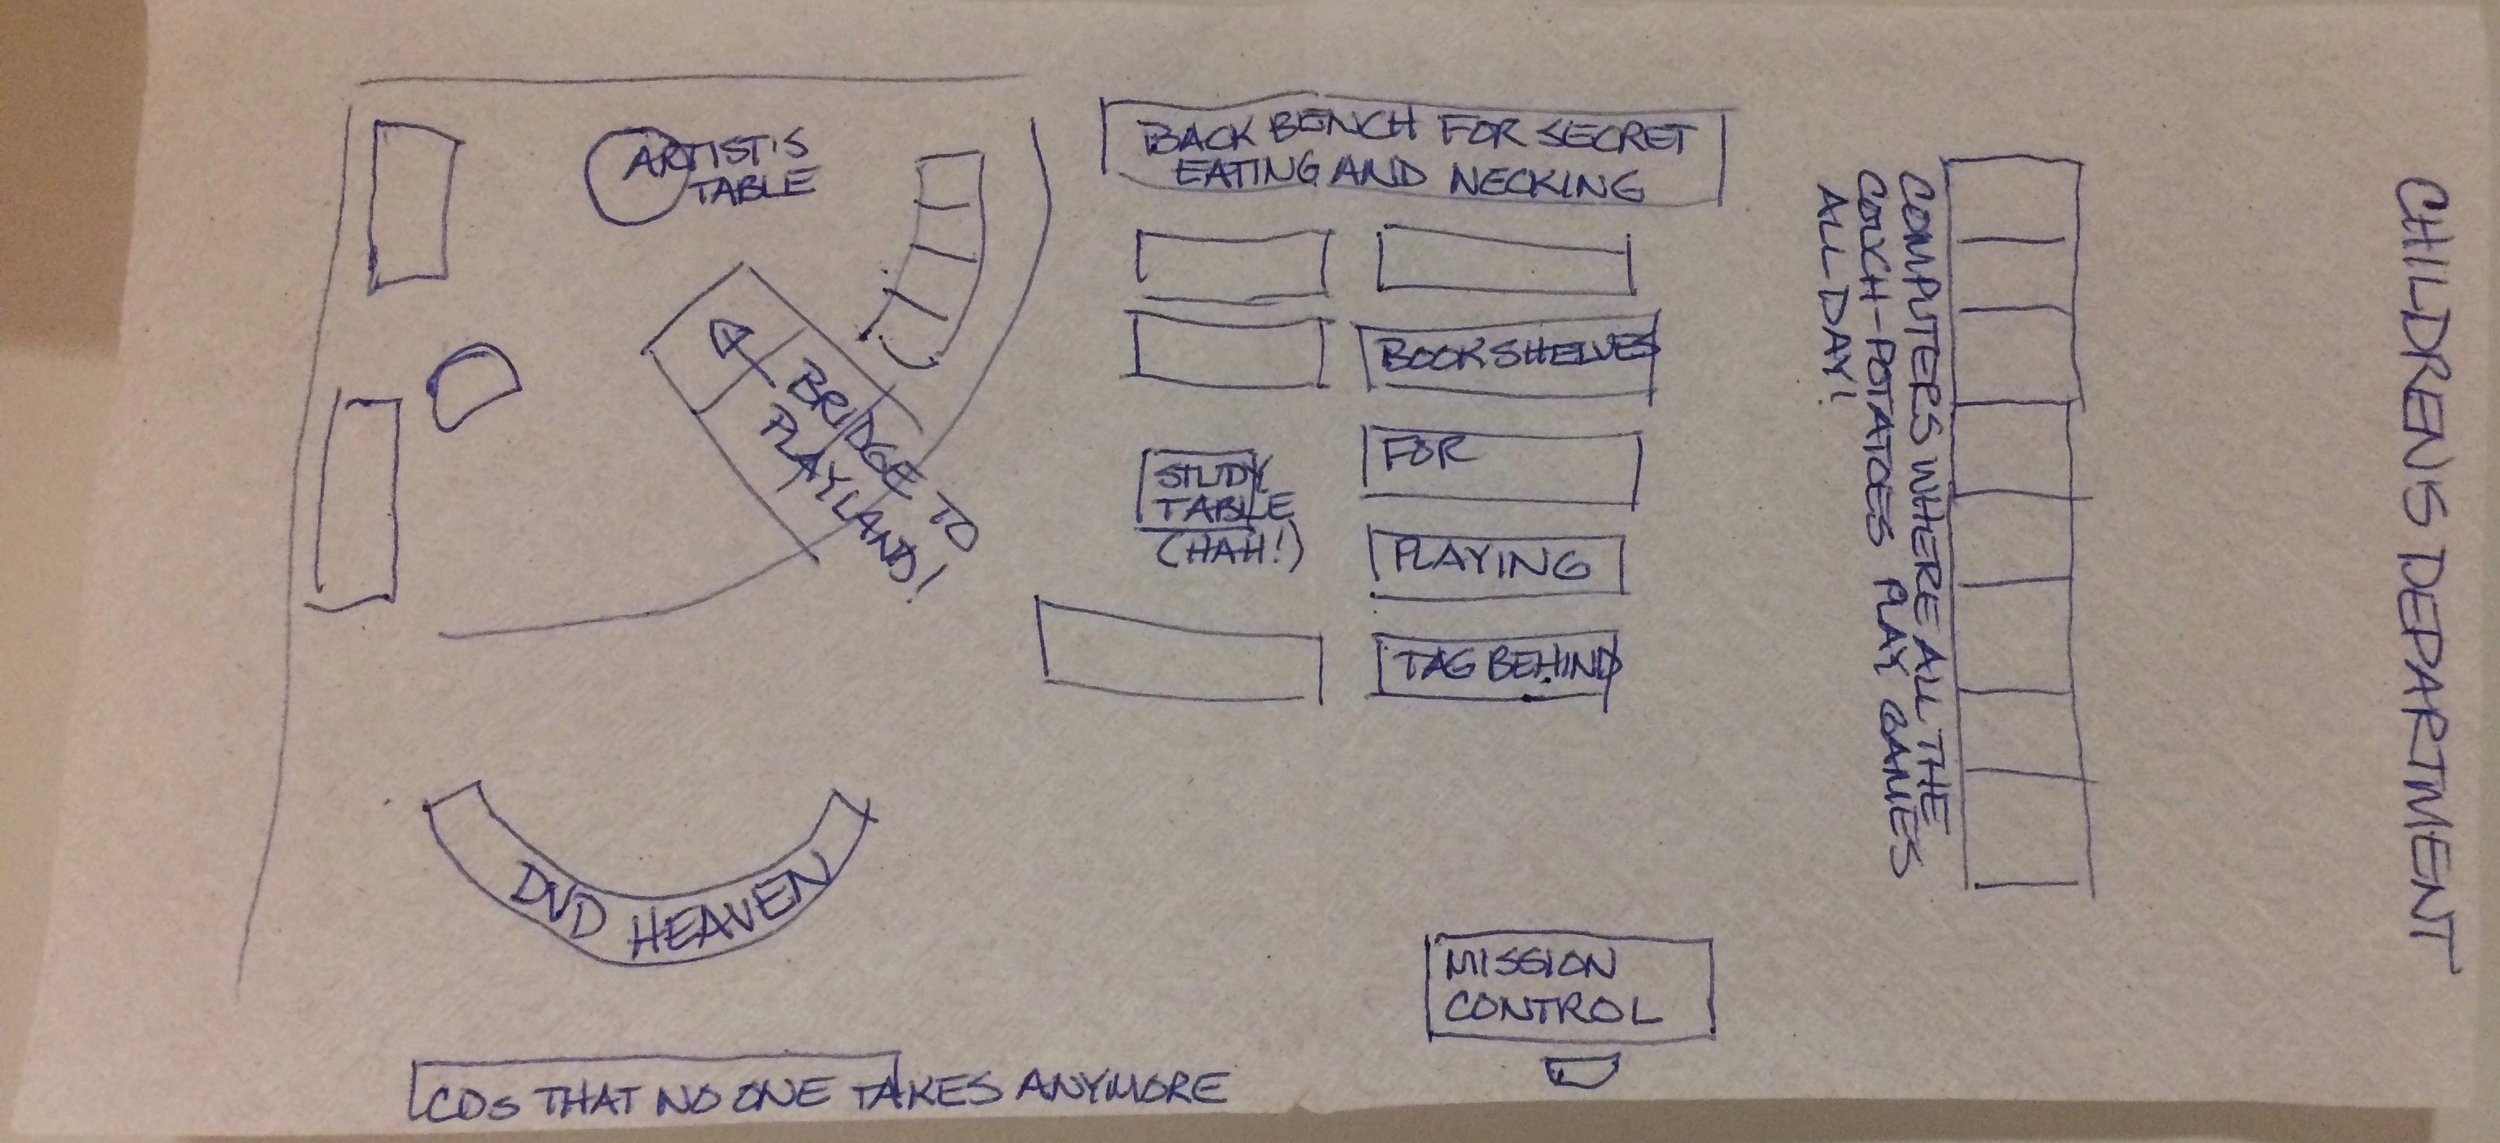 ARTIST'S
TABLE
BRIDGE TO
PLAYLAND!
BACK BENCH FOR SECRET
EATING AND NECKING
BOOKSHELVES
FOR
PLAYING
TAG BEHIND
STUDY
TABLE
(HAH!)
COMPUTERS WHERE ALL THE
COUCH-POTATOES PLAY GAMES
ALL DAY!
CHILDREN'S DEPARTMENT
DVD HEAVEN
MISSION
CONTROL
CDs THAT NO ONE TAKES ANYMORE